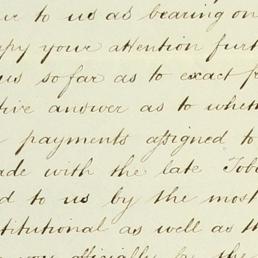 to us as bearing on
your attention furt
us so far as to exact f
tive answer as to wheth
payments assigned to
ade with the late Tob
d to us by the most
titutional as well as th
officially by the